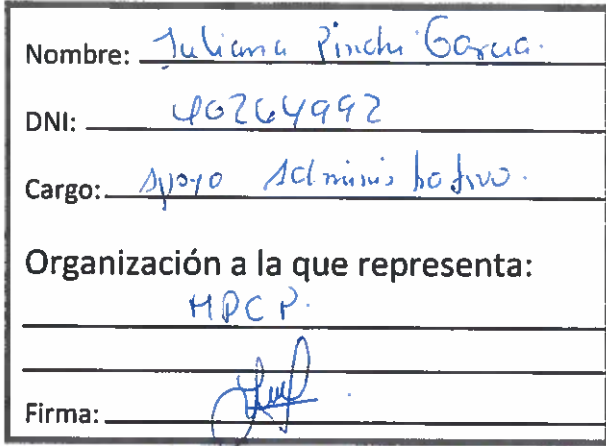 Nombre: Juliana Pinchi Garcia.
DNI: 40264992
Cargo: Apoyo Administrativo.
Organización a la que representa:
MPCP.
Firma: